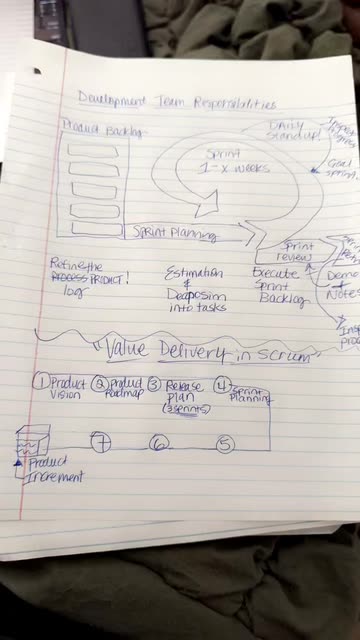 Development Team Responsibilities
Product Backlog
DAILY
standup!
Inspect
Goal
sprint
Sprint
1-x weeks
Sprint Planning
Sprint
review
Refine the
PROCESS PRODUCT!
log
Estimation
&
Decposim
into tasks
Execute
Sprint
Backlog
Demo
+
Notes
"Value Delivery in Scrum"
① Product
Vision
② Product
Roadmap
③ Release
Plan
(3 sprints)
④ Sprint
Planning
⑦ ⑥ ⑤
Product
Increment